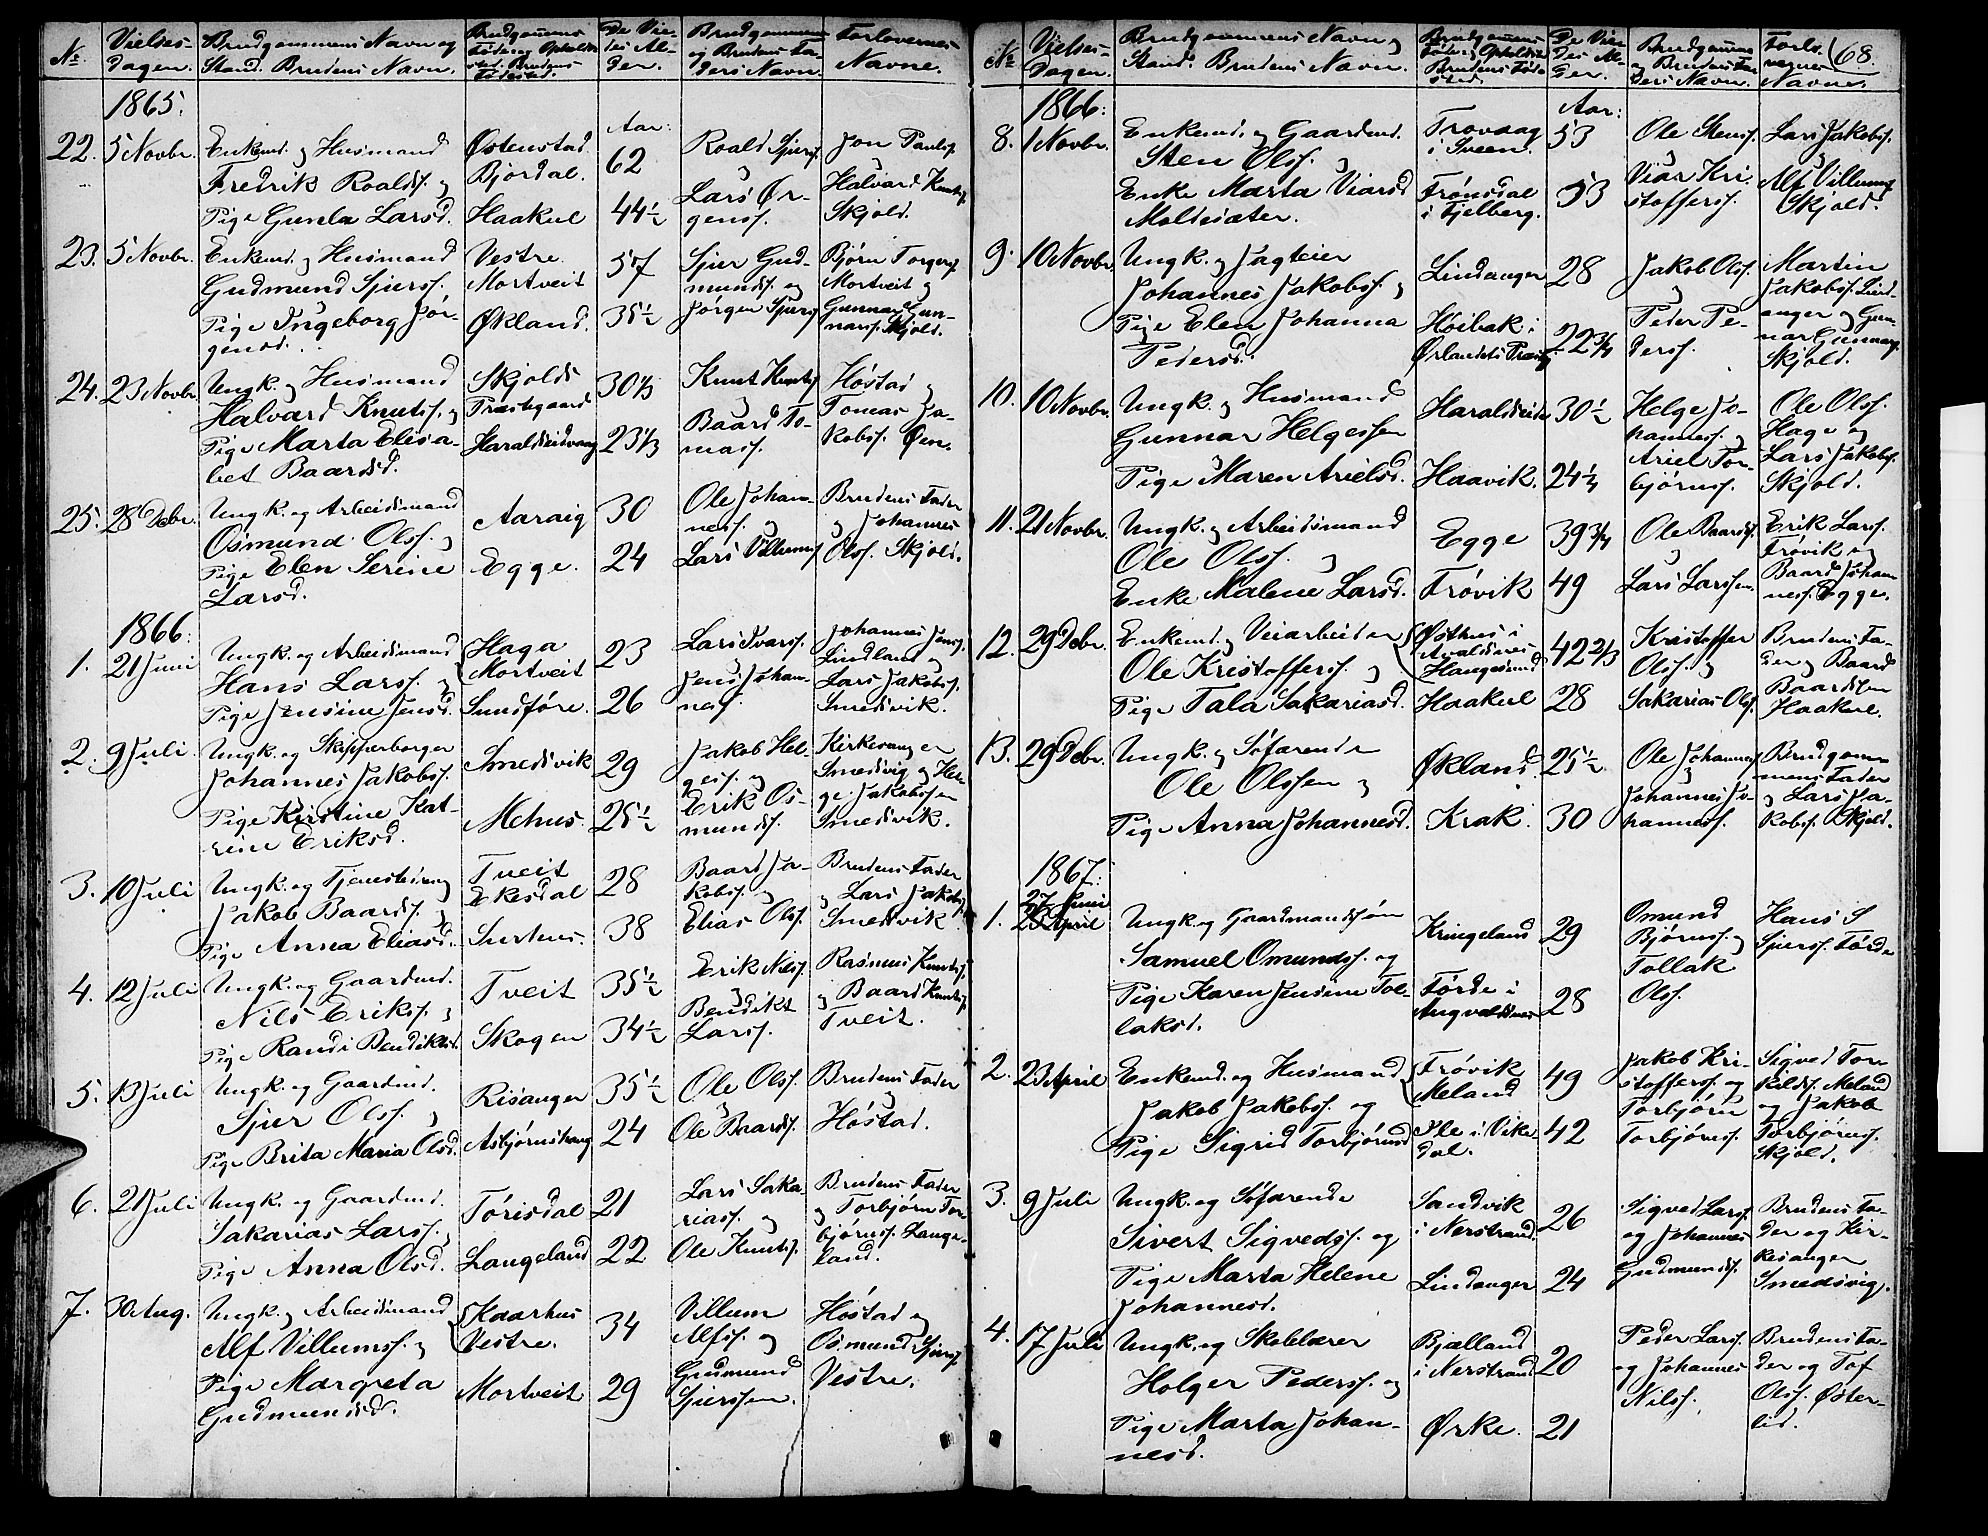 No.
Vielses-
dagen.
Brudgommens Navn og
Stand. Brudens Navn.
Brudgommens
Føde og Opholds
sted. Brudens
Fødested.
De Vie-
des Al-
der.
Brudgommens
og Brudens Fa-
ders Navn.
Forlovernes
Navne.
1865.
Aar:
22. 5 Novbr. Enkemd. og Husmand
Fredrik Roaldss. og
Pige Gunla Larsd.
Østenstad
Bjordal.
Haakul
62
44½
Roald Sjurss.
Lars Ør-
genss.
Jon Paulss.
Halvard Knutss.
Skjold.
23. 5 Novbr. Enkemd. og Husmand
Gudmund Sjurss.
Pige Ingeborg Jør-
gensd.
Vestre
Mortveit
Økland.
57
35½
Sjur Gud-
mundss. og
Jørgen Sjurss.
Bjørn Torgerss.
Mortveit og
Gunnar Gun-
narss. Skjold.
24. 23 Novbr. Ungk. og Husmand
Halvard Knutss. og
Pige Marta Elisa-
bet Baardsd.
Skjolds
Præstegaard
Haraldseidvaag
30⅓
23⅓
Knut Knutss.
Baard To-
mass.
Høstad og
Tomas Ja-
kobss. Øen.
25. 28 Debr. Ungk. og Arbeidsmand
Osmund Olss. og
Pige Elen Serine
Larsd.
Aaraig
Egge.
30
24
Ole Johan-
ness. og
Lars Villumss.
Brudens Fader
og Johannes
Olss. Skjold.
1866.
1. 21 Juni Ungk. og Arbeidsmand
Hans Larss. og
Pige Jensine Jensd.
Haga
Mortveit
Sundføre.
23
26
Lars Ivarss.
Jens Johan-
ness.
Johannes Jenss.
Lindland og
Lars Jakobss.
Smedsvik.
2. 9 Juli. Ungk. og Skipperborger
Johannes Jakobss.
Pige Kirstine Kat-
rine Eriksd.
Smedsvik
Mehus
29
25½
Jakob Hel-
gess. og
Erik Os-
mundss.
Kirkesanger
Smedsvig og Hel-
ge Jakobssen
Smedsvik.
3. 10 Juli Ungk. og Tjenestedreng
Jakob Baardss. og
Pige Anna Eliasd.
Tveit
Ekesdal
Surhus.
28
38
Baard Ja-
kobss. og
Elias Olss.
Brudens Fader
og Lars Jakobss.
Smedsvik
4. 12 Juli Ungk. og Gaardmd.
Nils Erikss. og
Pige Randi Bendiktsd.
Tveit
Skogen
35½
34½
Erik Nilss.
og
Bendikt
Larss.
Rasmus Knutss.
og Baard Knutss.
Tveit.
5. 13 Juli Ungk. og Gaardmd.
Sjur Olss. og
Pige Brita Maria Olsd.
Risanger
Asbjørnshaug
35½
24
Ole Olss.
og
Ole Baardss.
Brudens Fader
og
Høstad.
6. 21 Juli Ungk. og Gaardmd.
Sakarias Larss.
Pige Anna Olsd.
Tørisdal
Langeland
21
22
Lars Saka-
riass. og
Ole Knutss.
Brudens Fader
og Torbjørn Tor-
bjørnss. Lange-
land.
7. 30 Aug. Ungk. og Arbeidsmand
Alf Villumss. og
Pige Margreta
Gudmundsd.
Kaarhus
Vestre.
Mortveit
34
29
Villum
Alfss. og
Gudmund
Sjurssen.
Høstad og
Osmund Sjurss.
Vestre.
No.
Vielses-
Dagen.
Brudgommens Navn og
Stand. Brudens Navn.
Brudgommens
Føde og Opholdssted
Brudens Føde-
sted.
De Vie-
des Al-
der.
Brudgommens
og Brudens Fa-
ders Navn.
Forlo-
vernes
Navne.
68.
1866:
Aar:
8. 1 Novbr. Enkemd. og Gaardmd.
Sten Olss. og
Enke Marta Viarsd
Moldesæter.
Trovaag
i Sveen.
Frønsdal
i Fjelberg.
53
53
Ole Stenss.
og
Viar Kri-
stofferss.
Lars Jakobss.
Alf Villumss.
Skjold.
9. 10 Novbr. Ungk. og Jagteier
Johannes Jakobss. og
Pige Elen Johanna
Pedersd.
Lindanger
Høibak i
Ørlandets Præstg.
28
22¾
Jakob Olss.
og
Peder Pe-
derss.
Martin
Jakobss. Lind-
anger og Gun-
nar Gunnarss.
Skjold.
10. 10 Novbr. Ungk. og Husmand
Gunnar Helgessen
Pige Maren Arielsd.
Haraldseide
Haavik.
30½
24¼
Helge Jo-
hanness. og
Ariel Tor-
bjørnss.
Ole Olss.
Hage og
Lars Jakobss.
Skjold.
11. 21 Novbr. Ungk. og Arbeidsmand
Ole Olss. og
Enke Malene Larsd.
Egge
Trøvik
39¾
49
Ole Baardss.
og
Lars Larssen.
Erik Larss.
Trøvik og
Baard Johan-
ness. Egge.
12. 29 Debr. Enkemd. og Veiarbeider
Ole Kristofferss. og
Pige Tala Sakariasd.
Østhus i
Avaldsnes
Haugesund
Haakul
42⅔
28
Kristoffer
Olss. og
Sakarias Olss.
Brudens Fa-
der og Baard
Baardssen
Haakul.
13. 29 Debr. Ungk. og Søfarende
Ole Olssen og
Pige Anna Johannesd.
Økland
Krak.
25½
30
Ole Johanness.
og
Johannes Jo-
hanness.
Brudgom-
mens Fader
og Lars Ja-
kobss. Skjold.
1867:
1. 27 Juni
Ungk. og Gaardmandssøn
Samuel Omundss. og
Pige Karen Jensine Tol-
laksd.
Kringeland
Førde i
Augvaldsnes
29
28
Omund
Bjørnss. og
Tollak
Olss.
Hans S
Sjurss. Førde
2. 23 April Enkemd. og Husmand
Jakob Jakobss. og
Pige Sigrid Torbjørnsd
Trøvik
Meland
Ile i Vike-
dal.
49
42
Jakob Kri-
stofferss. og
Torbjørn
Torbjørnss.
Sigved Tor-
kelds. Meland
og Jakob
Torbjørnss.
Skjold.
3. 9 Juli Ungk. og Søfarende
Sivert Sigvedss. og
Pige Marta Helene
Johannesd.
Sandvik
i Nerstrand.
Lindanger
26
24
Sigved Larss.
og Johannes
Gudmundss.
Brudens Fa-
der og Kir-
kesanger
Smedsvig.
4. 17 Juli Ungk. og Skolelærer
Holger Pederss. og
Pige Marta Johan-
nesd.
Bjalland
i Nerstrand
Ørke.
20
21
Peder Larss.
og Johannes
Nilss.
Brudens Fa-
der og Tof
Olss. Øster-
lid.